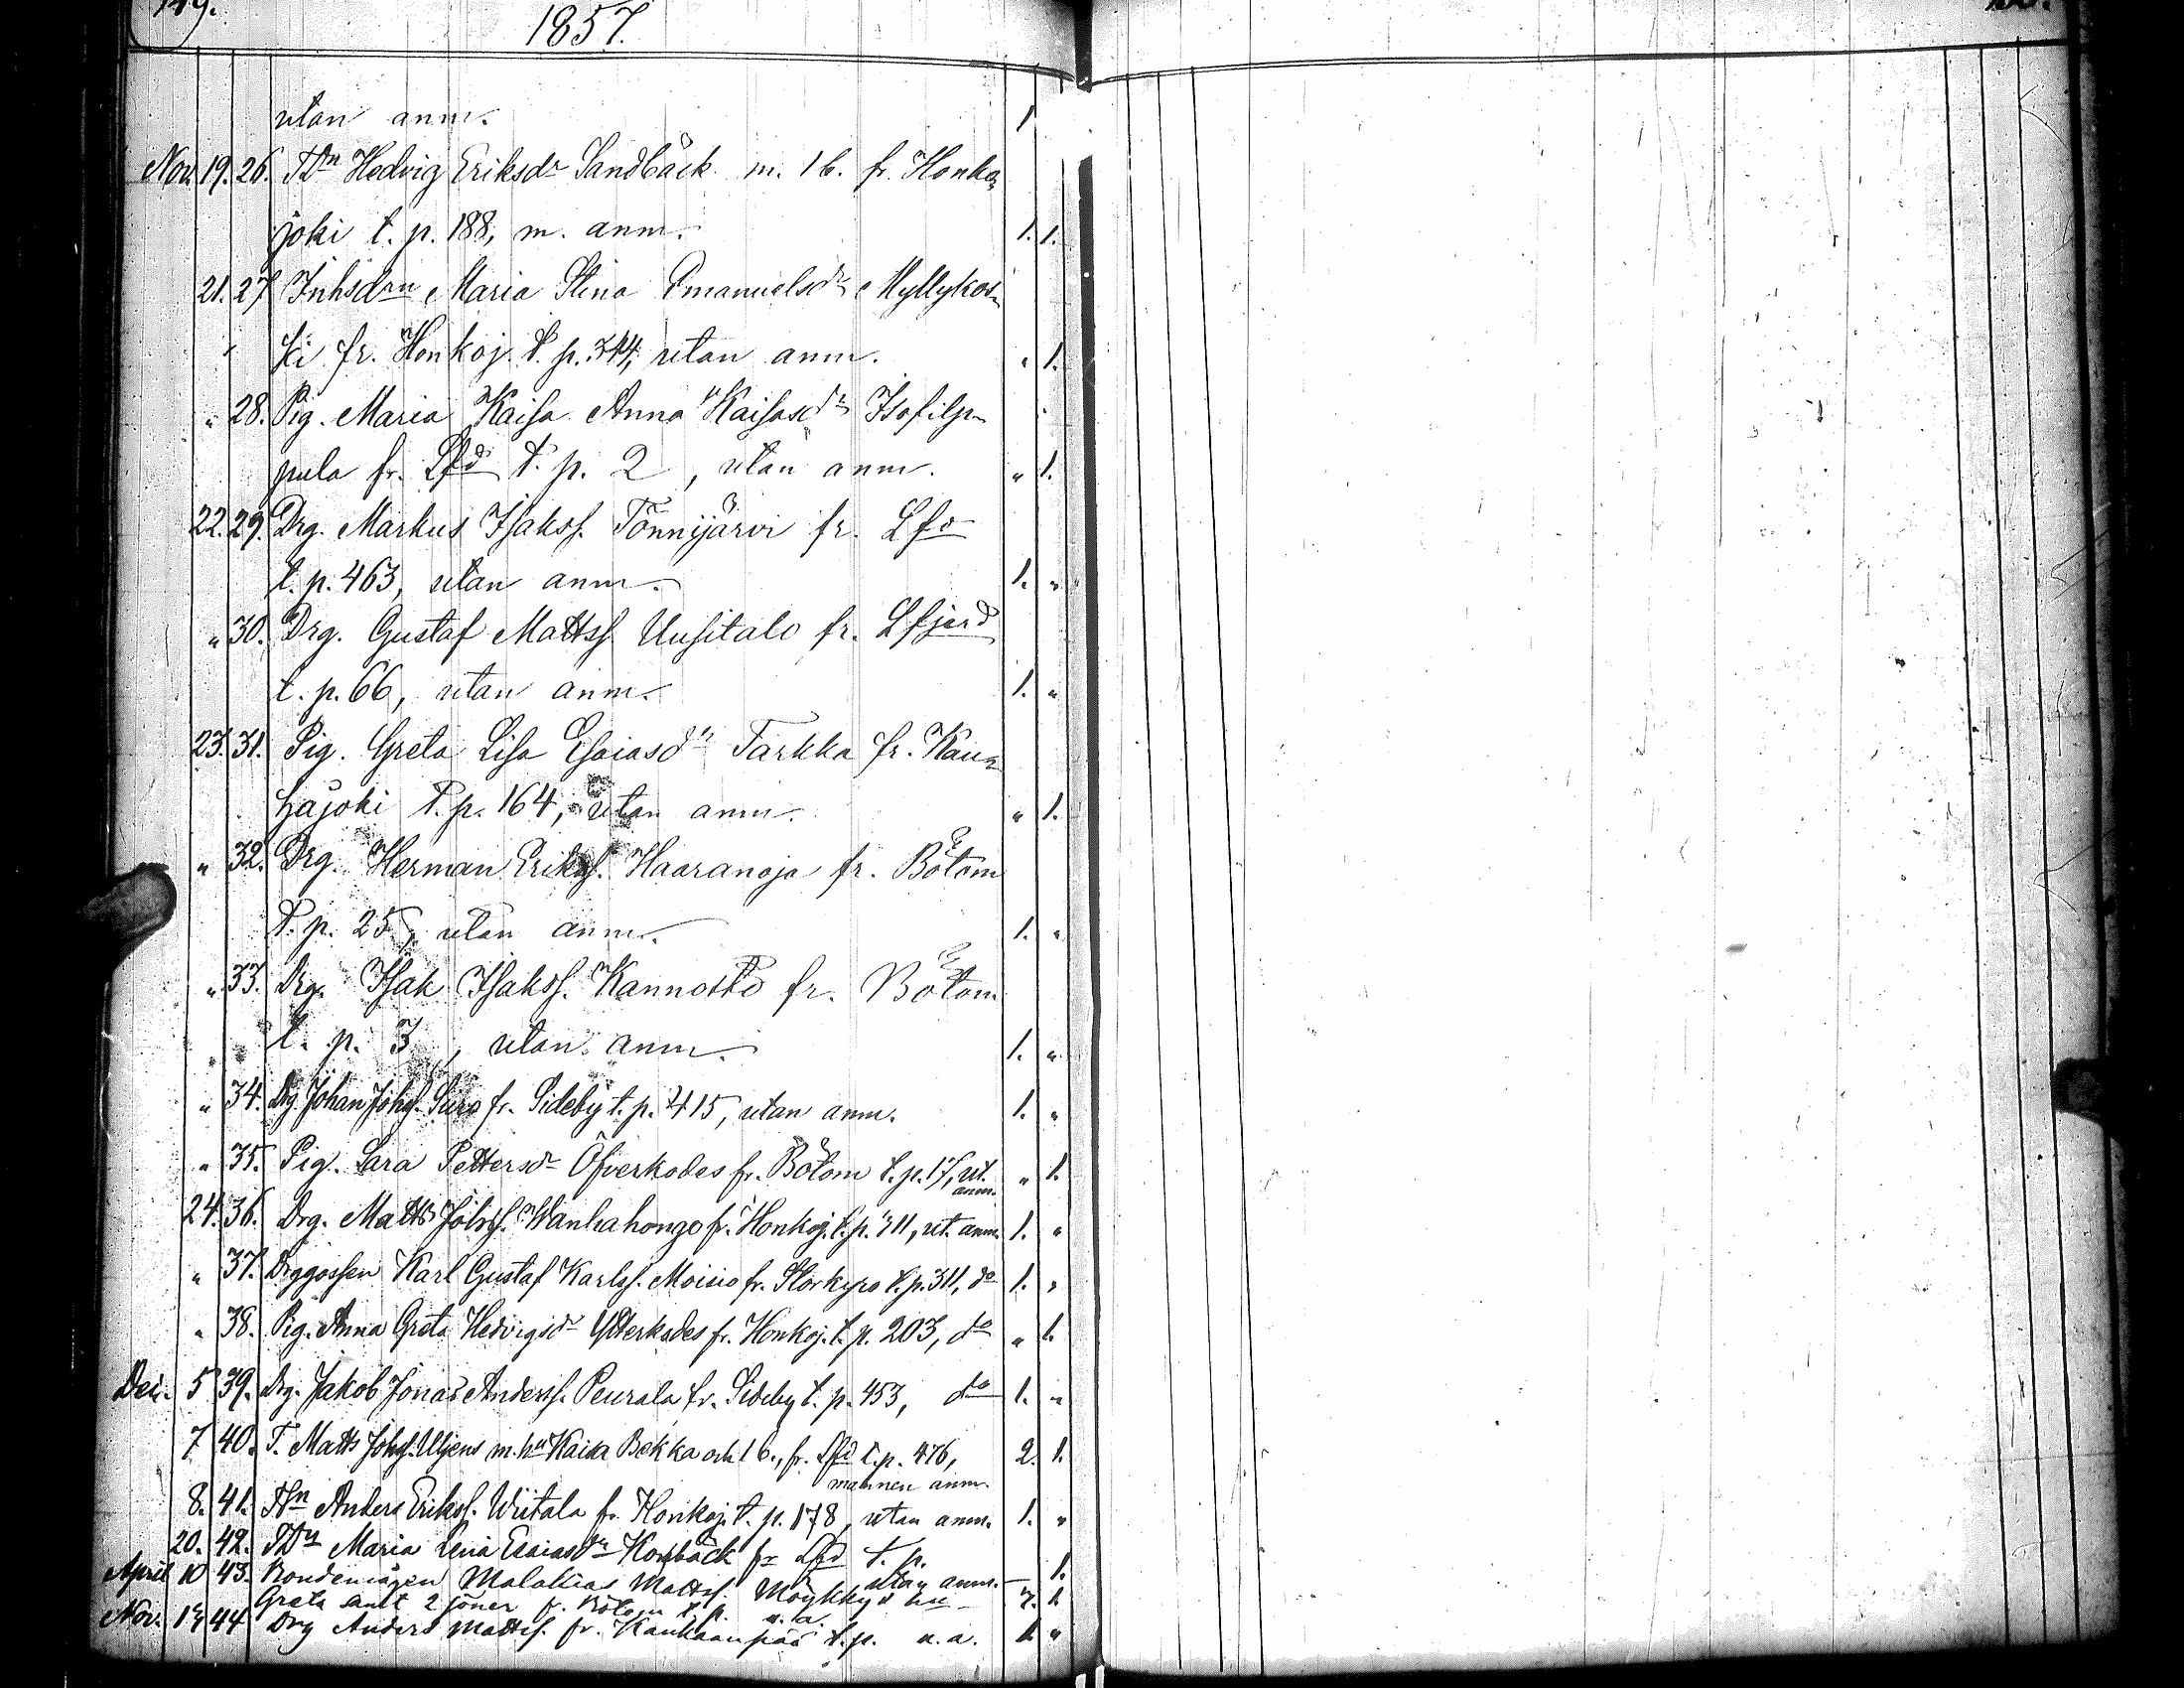 149.
1857.
utan anm. 1
Nov. 19. 26. TDn Hedvig Eriksdr Sandbäck m. 1 b. fr. Honka
joki t. p. 188, m. anm. 1. 1.
21. 27 Inhsdrn Maria Stina Emanuelsdr Myllykos
ki fr. Honkoj. t. p. 314, utan anm. " 1.
" 28. Pig. Maria Kaisa Anna Kaisasdr Isofilp
pula fr. Lfd t. p. 2, utan anm. " 1.
22. 29. Drg. Markus Isakss. Tönnijärvi fr. Lfd
t. p. 463, utan anm. 1. "
" 30. Drg. Gustaf Mattss. Uusitalo fr. Lfjerd
t. p. 66, utan anm. 1. "
23. 31. Pig. Greta Lisa Esaiasdr Tarkka fr. Kau
hajoki t. p. 164, utan anm. " 1.
" 32. Drg. Herman Erikss. Haaranoja fr. Bötom
t. p. 25, utan anm. 1. "
" 33. Drg. Isak Isakss. Kannosto fr. Bötom
t. p. 3, utan anm. 1. "
" 34. Drg. Johan Johss. fr. Sideby t. p. 415, utan anm. 1. "
" 35. Pig. Sara Pettersdr Öfverkodes fr. Bötom t. p. 17, ut. " 1.
anm.
24. 36. Drg. Matts Johss. Wanhahongo fr. Honkoj. t. p. 111, ut. anm. 1. "
" 37. Drggossen Karl Gustaf Karlss. Moisio fr. Storkyro t. p. 311, do 1. "
" 38. Pig. Anna Greta Hedvigsdr Ytterkodes fr. Honkoj. t. p. 203, do " 1.
Dec. 5 39. Drg. Jakob Jonas Anderss. Peurala fr. Sideby t. p. 453, do 1. "
7 40. T. Matts Johss. Uljens m. hu Kaisa Bekka och 1 b., fr. Lfd t. p. 476, 2. 1.
mannen anm.
8. 41. Anders Erikss. Wiitala fr. Honkoj. t. p. 178, utan anm. 1. "
20. 42. TDn Maria Lena Esaiasdr Korsbäck fr Lfd t. p.
utan anm. — 1.
April 10 43. Bondemågen Malakias Mattss. Möykky d hu
Greta samt 2 söner fr. Bötom t. p. u. a. 1.
Nov. 44 Drg Anders Mattss. fr. Kankaanpää t. p. u. a. 1. "